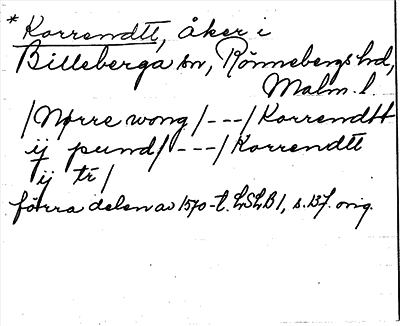 * Korrendtt, åker i
Billeberga sn, Rönnebergs hd,
Malm. l.
/Nørre wong/---/Korrendtt
ij pund/---/Korrendtt
ij tr/
förra delen av 1570-t. LSLB 1, s. 137. orig.